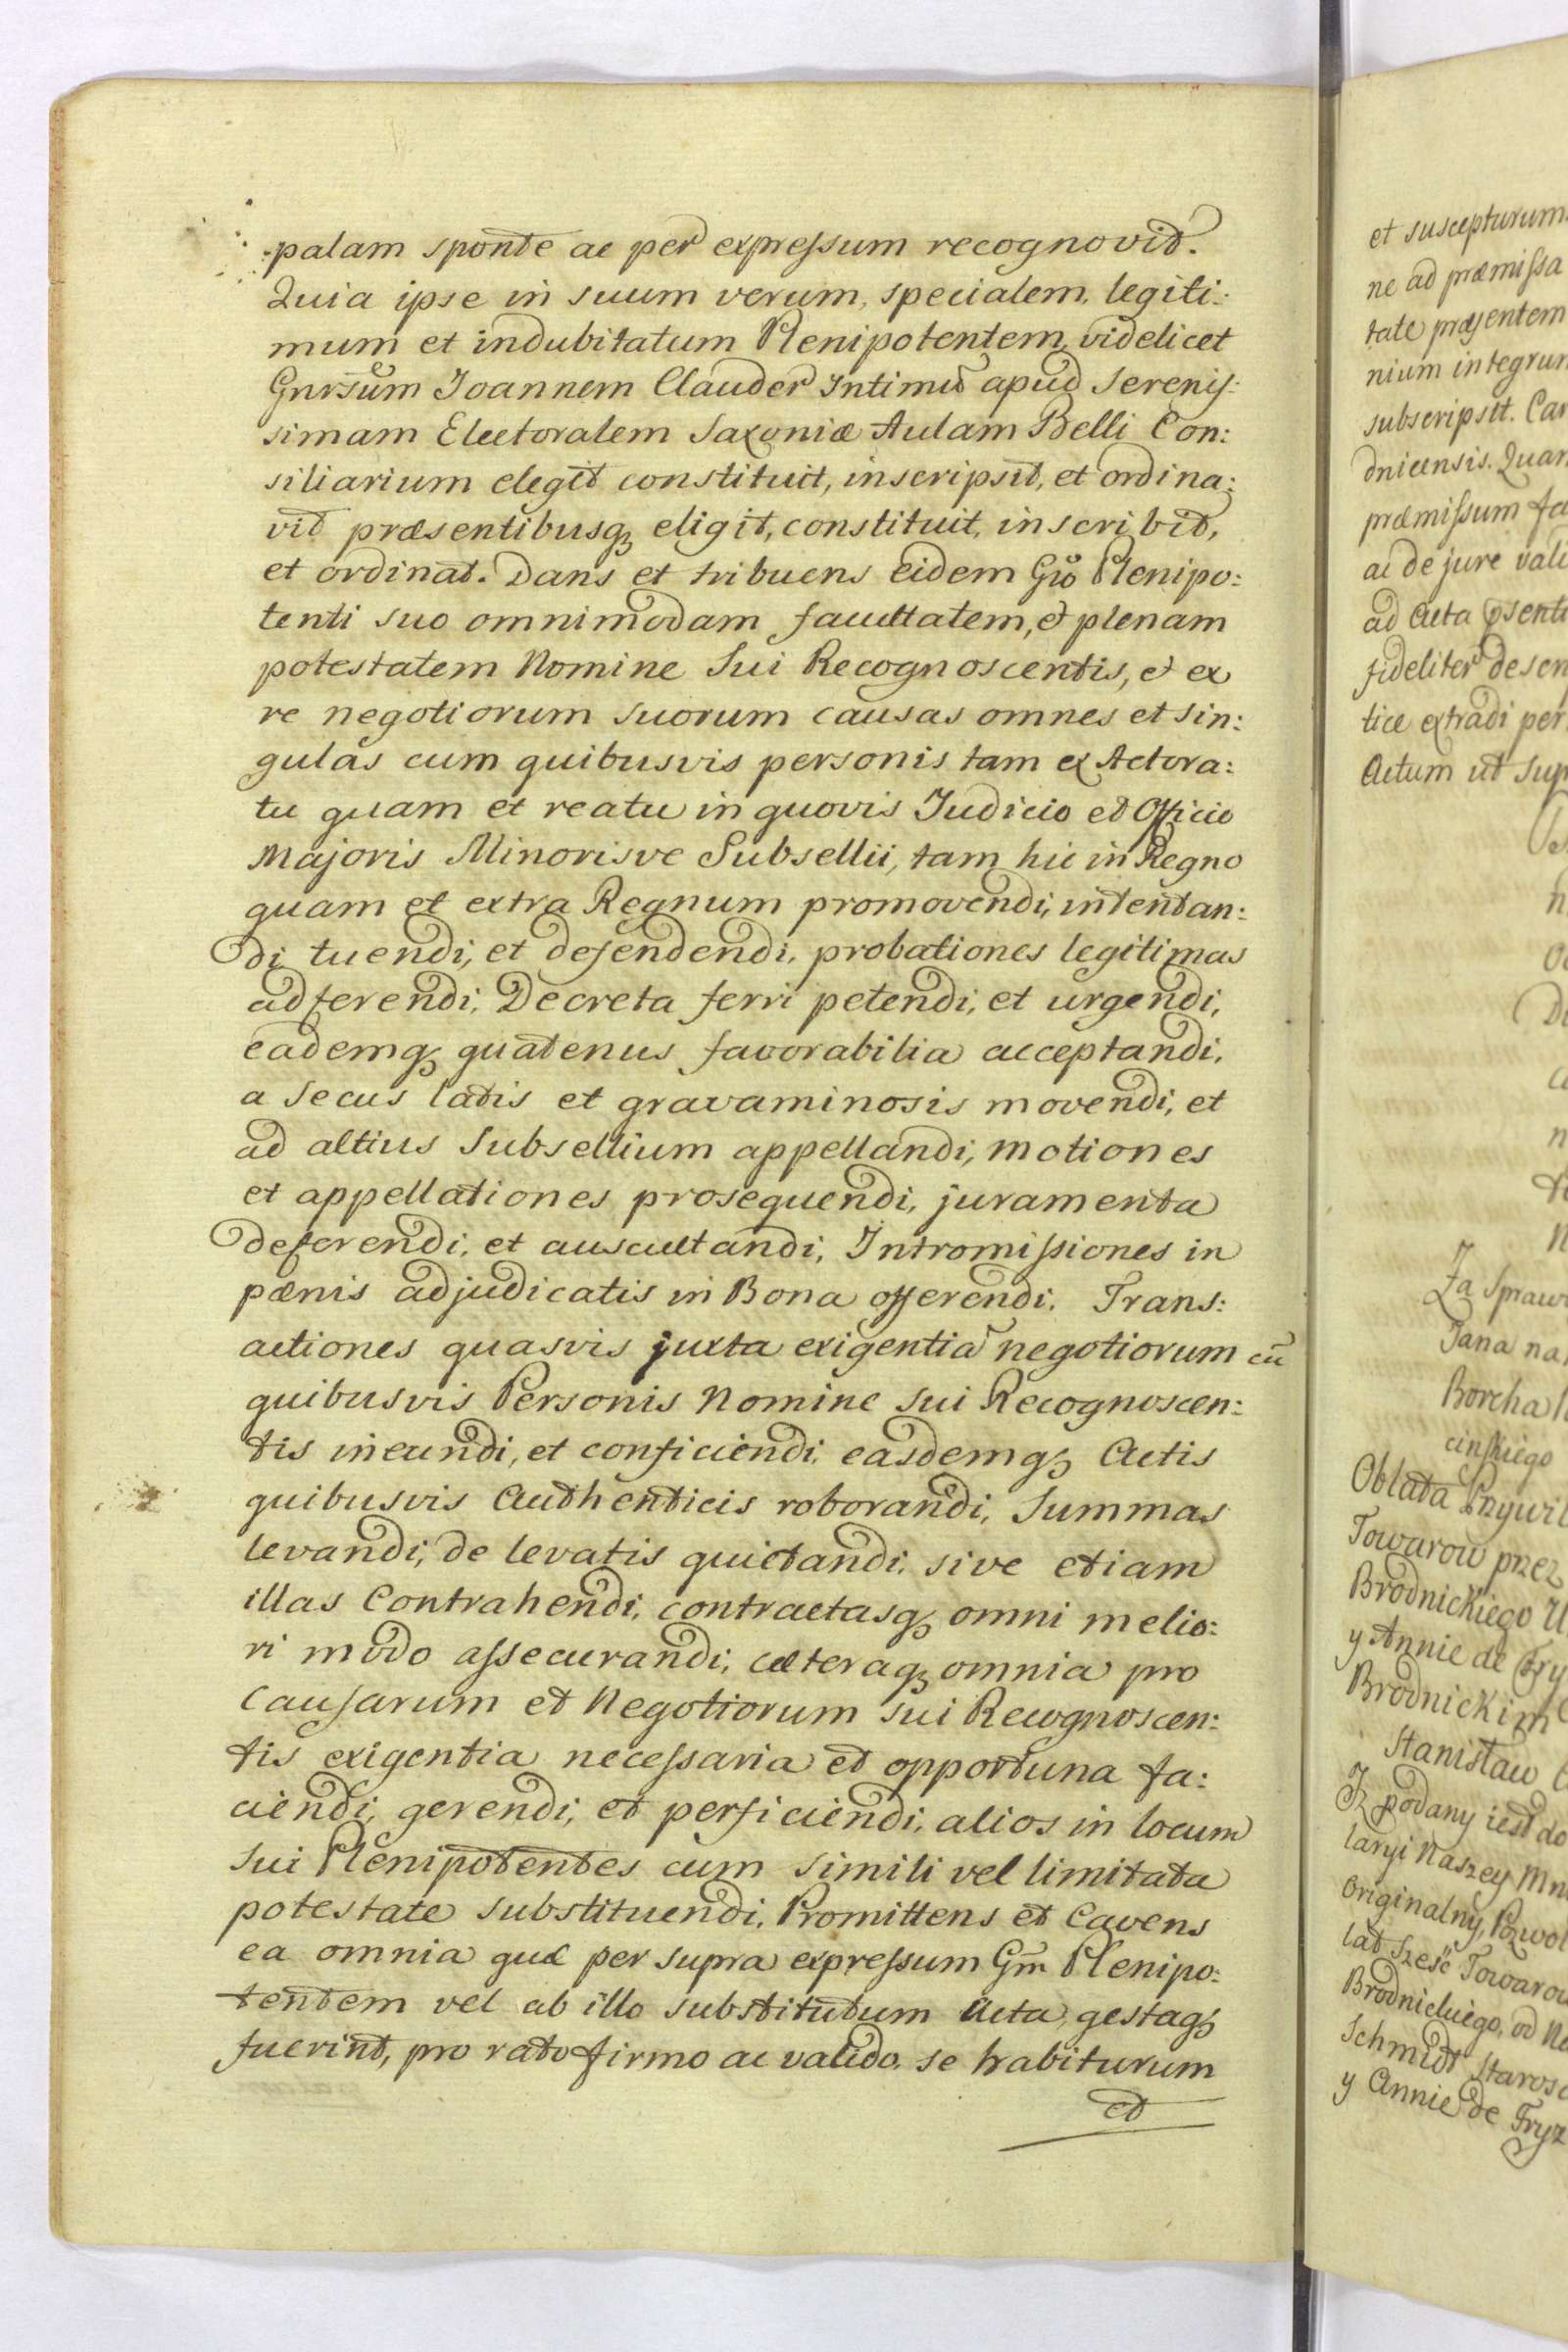 palam sponte ac per expressum recognovit.
Quia ipse in suum verum, specialem, legiti:
mum et indubitatum Plenipotentem, videlicet
Gnrsum Joannem Clauder Intimũ apud Serenis:
simam Electoralem Saxoniæ Aulam Belli Con:
siliarium elegit constituit, inscripsit, et ordina:
vit præsentibusq₃ eligit, constituit, inscribit,
et ordinat. Dans et tribuens eidem Gro Plenipo:
tenti suo omnimodam facultatem, et plenam
potestatem Nomine Sui Recognoscentis, et ex
re negotiorum suorum causas omnes et sin:
gulas cum quibusvis personis tam ex Actora:
tu quam et reatu in quovis Judicio et Officio
Majoris Minorisve Subsellii, tam hic in Regno
quam et extra Regnum promovendi, intentan:
di tuendi, et defendendi, probationes legitimas
adferendi, Decreta ferri petendi, et urgendi,
eademq₃ quatenus favorabilia acceptandi,
a secus latis et gravaminosis movendi, et
ad altius Subsellium appellandi, motiones
et appellationes prosequendi, juramenta
deferendi, et auscultandi, Intromissiones in
pænis adjudicatis in Bona offerendi. Trans:
actiones quasvis juxta exigentiã negotiorum cũ
quibusvis Personis Nomine sui Recognoscen:
tis ineundi, et conficiendi, easdemq₃ Actis
quibusvis Authenticis roborandi, Summas
levandi, de levatis quietandi, sive etiam
illas Contrahendi, contractasq₃ omni melio:
ri modo assecurandi, cæteraq₃ omnia pro
Causarum et Negotiorum sui Recognoscen:
tis exigentia necessaria et opportuna fa:
ciendi, gerendi, et perficiendi, alios in locum
sui Plenipotentes cum simili vel limitata
potestate substituendi, Promittens et Cavens
ea omnia quæ per supra expressum Gm̃ Plenipo:
tentem vel ab illo substitutum Acta, gestaq₃
fuerint, pro rato firmo ac valido se habiturum
et
et suscepturum
ne ad præmissa
tate præsentem
nium integrum
subscripsit. Car
dnicensis. Quar
præmissum fa
ac de jure vali
ad Acta psenti
fideliter descri
tice extradi per
Actum ut Sup
Za Spraw
Jana na
Borcha
cińskiego
Oblata Przywil
Towarow przez
Brodnickiego U
y Annie de Fry
Brodnickim
Stanisław
Iz podany iest do
laryi Naszey Mn
Originalny, Pozwol
lat Szesc Towarow
Brodnickiego, od Na
Schmidt Starosc
y Annie de Fryz